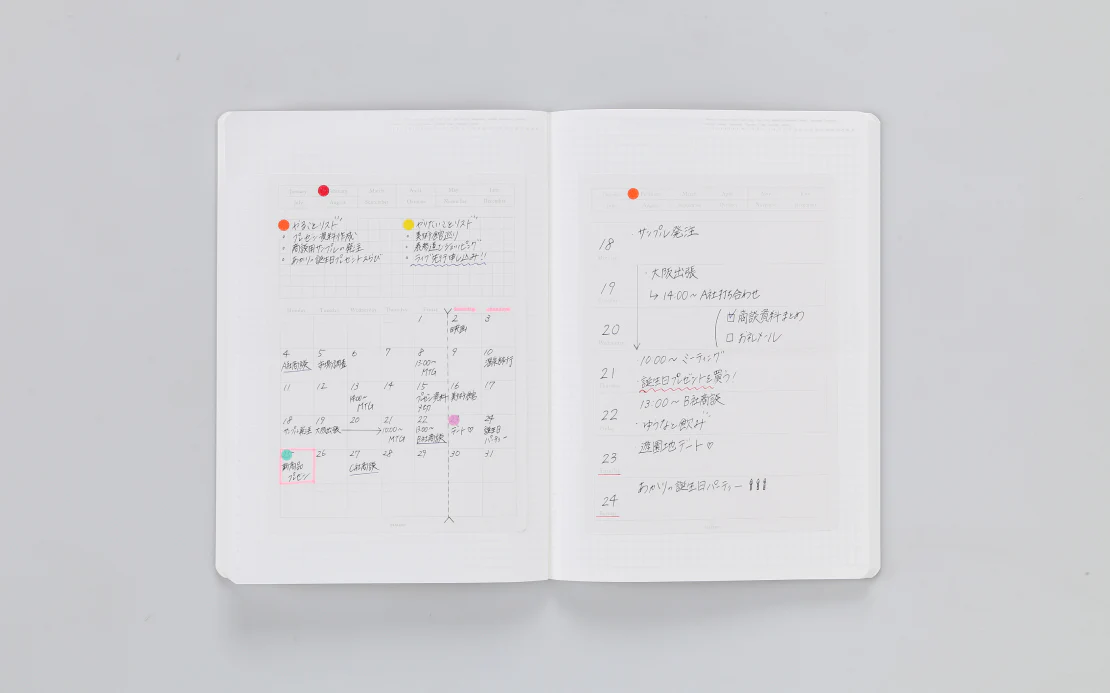 January
March
April
May
June
July
August
September
October
November
December
やることリスト
・プレゼン資料作成
・商談用サンプルの発注
・あかりの誕生日プレゼントえらび
やりたいことリスト
・美術館巡り
・表参道でショッピング
・ライブ先行申し込み!!
Monday
Tuesday
Wednesday
Thursday
Friday
Saturday
1
2
3
映画
4
5
6
7
8
9
10
A社商談
市場調査
13:00〜
MTG
温泉旅行
11
12
13
14
15
16
17
14:00〜
MTG
プレゼン資料
〆切
美術館
18
19
20
21
22
24
サンプル発注
大阪出張
10:00〜
MTG
13:00〜
B社商談
デート♡
誕生日
パーティー
26
27
28
29
30
31
新商品
プレゼン
C社商談
18
・サンプル発注
19
・大阪出張
↳ 14:00〜 A社打ち合わせ
20
☑ 商談資料まとめ
☐ お礼メール
21
・10:00〜 ミーティング
・誕生日プレゼントを買う!
22
13:00〜 B社商談
・ゆうなと飲み
23
遊園地デート♡
24
あかりの誕生日パーティー